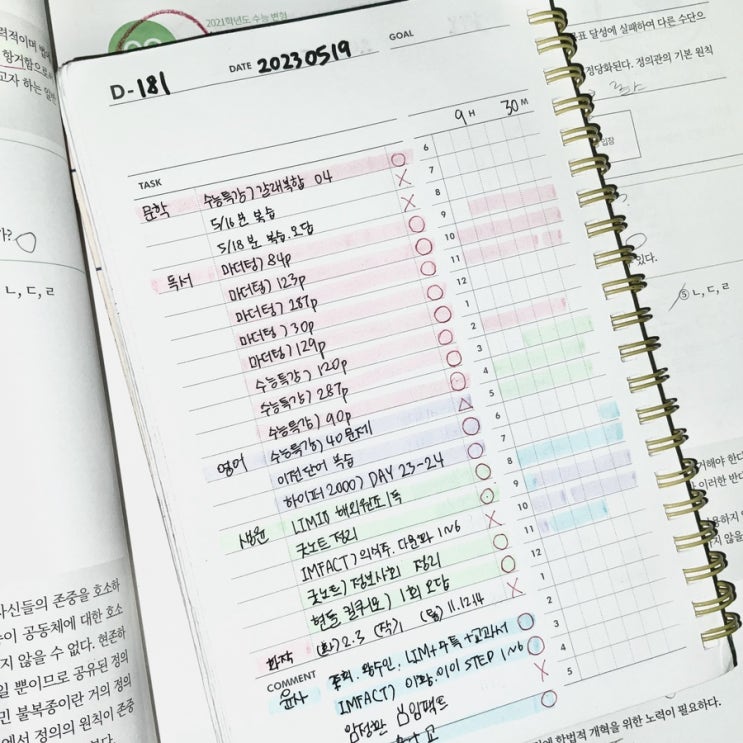 2021학년도 수능 변형
D-181
DATE 20230519
GOAL
9 H 30 M
TASK
문학 수능특강) 갈래복합 04
5/16 분 복습
5/18 분 복습. 오답
독서 마더텅) 84p
마더텅) 123p
마더텅) 287p
마더텅) 30p
마더텅) 129p
수능특강) 120p
수능특강) 287p
수능특강) 90p
영어 수능특강) 40문제
이전단어 복습
하이퍼2000) DAY 23-24
생윤 LIMIT) 해외원조 1독
굿노트 정리
IMFACT) 의여주. 다문화 1~6
굿노트) 정보사회 정리
현돌 킬커모) 1회 오답
화작 (화) 2.3 (작) 1
COMMENT
윤사
IMFACT) 이황.이이 STEP 1~6
임팩트
6
7
8
9
10
11
12
1
2
3
4
5
6
7
8
9
10
11
12
1
2
3
4
5
표 달성에 실패하여 다른 수단으
정당화된다. 정의관의 기본 원칙
입장
있다.
⑤ ㄴ, ㄷ, ㄹ
ㄴ, ㄷ, ㄹ
가?
사신들의 존중을 호소하
이 공동체에 대한 호소
지 않을 수 없다. 현존하
일 뿐이므로 공유된 정의
민 불복종이란 거의 정의
에서 정의의 원칙이 존중
본다.
거해야 한다
이러한 반다
헌법적 개혁을 위한 노력이 필요하다.